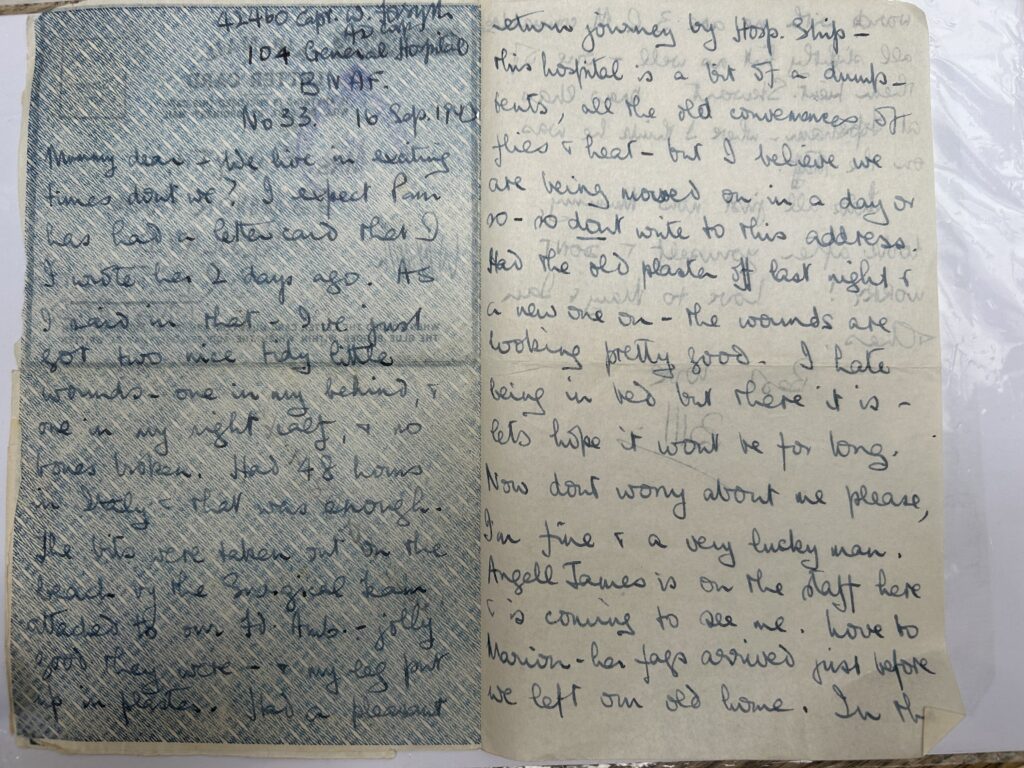 42460 Capt. W. Forsyth
104 General Hospital
BNAF.
No 33. 16 Sep. 1943
Mummy dear - We live in exciting
times dont we? I expect Pam
has had a letter card that I
I wrote her 2 days ago. As
I said in that - I've just
got two nice tidy little
wounds - one in my behind, &
one in my right calf, & no
bones broken. Had 48 hours
in Italy - that was enough.
The bits were taken out on the
beach by the Surgical team
attached to our Fd. Amb. - jolly
good they were - & my leg put
up in plaster. Had a pleasant
return journey by Hosp. Ship -
This hospital is a bit of a dump -
tents, all the old conveniences of
flies & heat - but I believe we
are being moved on in a day or
so - so dont write to this address.
Had the old plaster off last night &
a new one on - the wounds are
looking pretty good. I hate
being in bed but there it is -
lets hope it wont be for long.
Now dont worry about me please,
I'm fine & a very lucky man.
Angell James is on the staff here
& is coming to see me. Love to
Marion - her fags arrived just before
we left our old home. In the